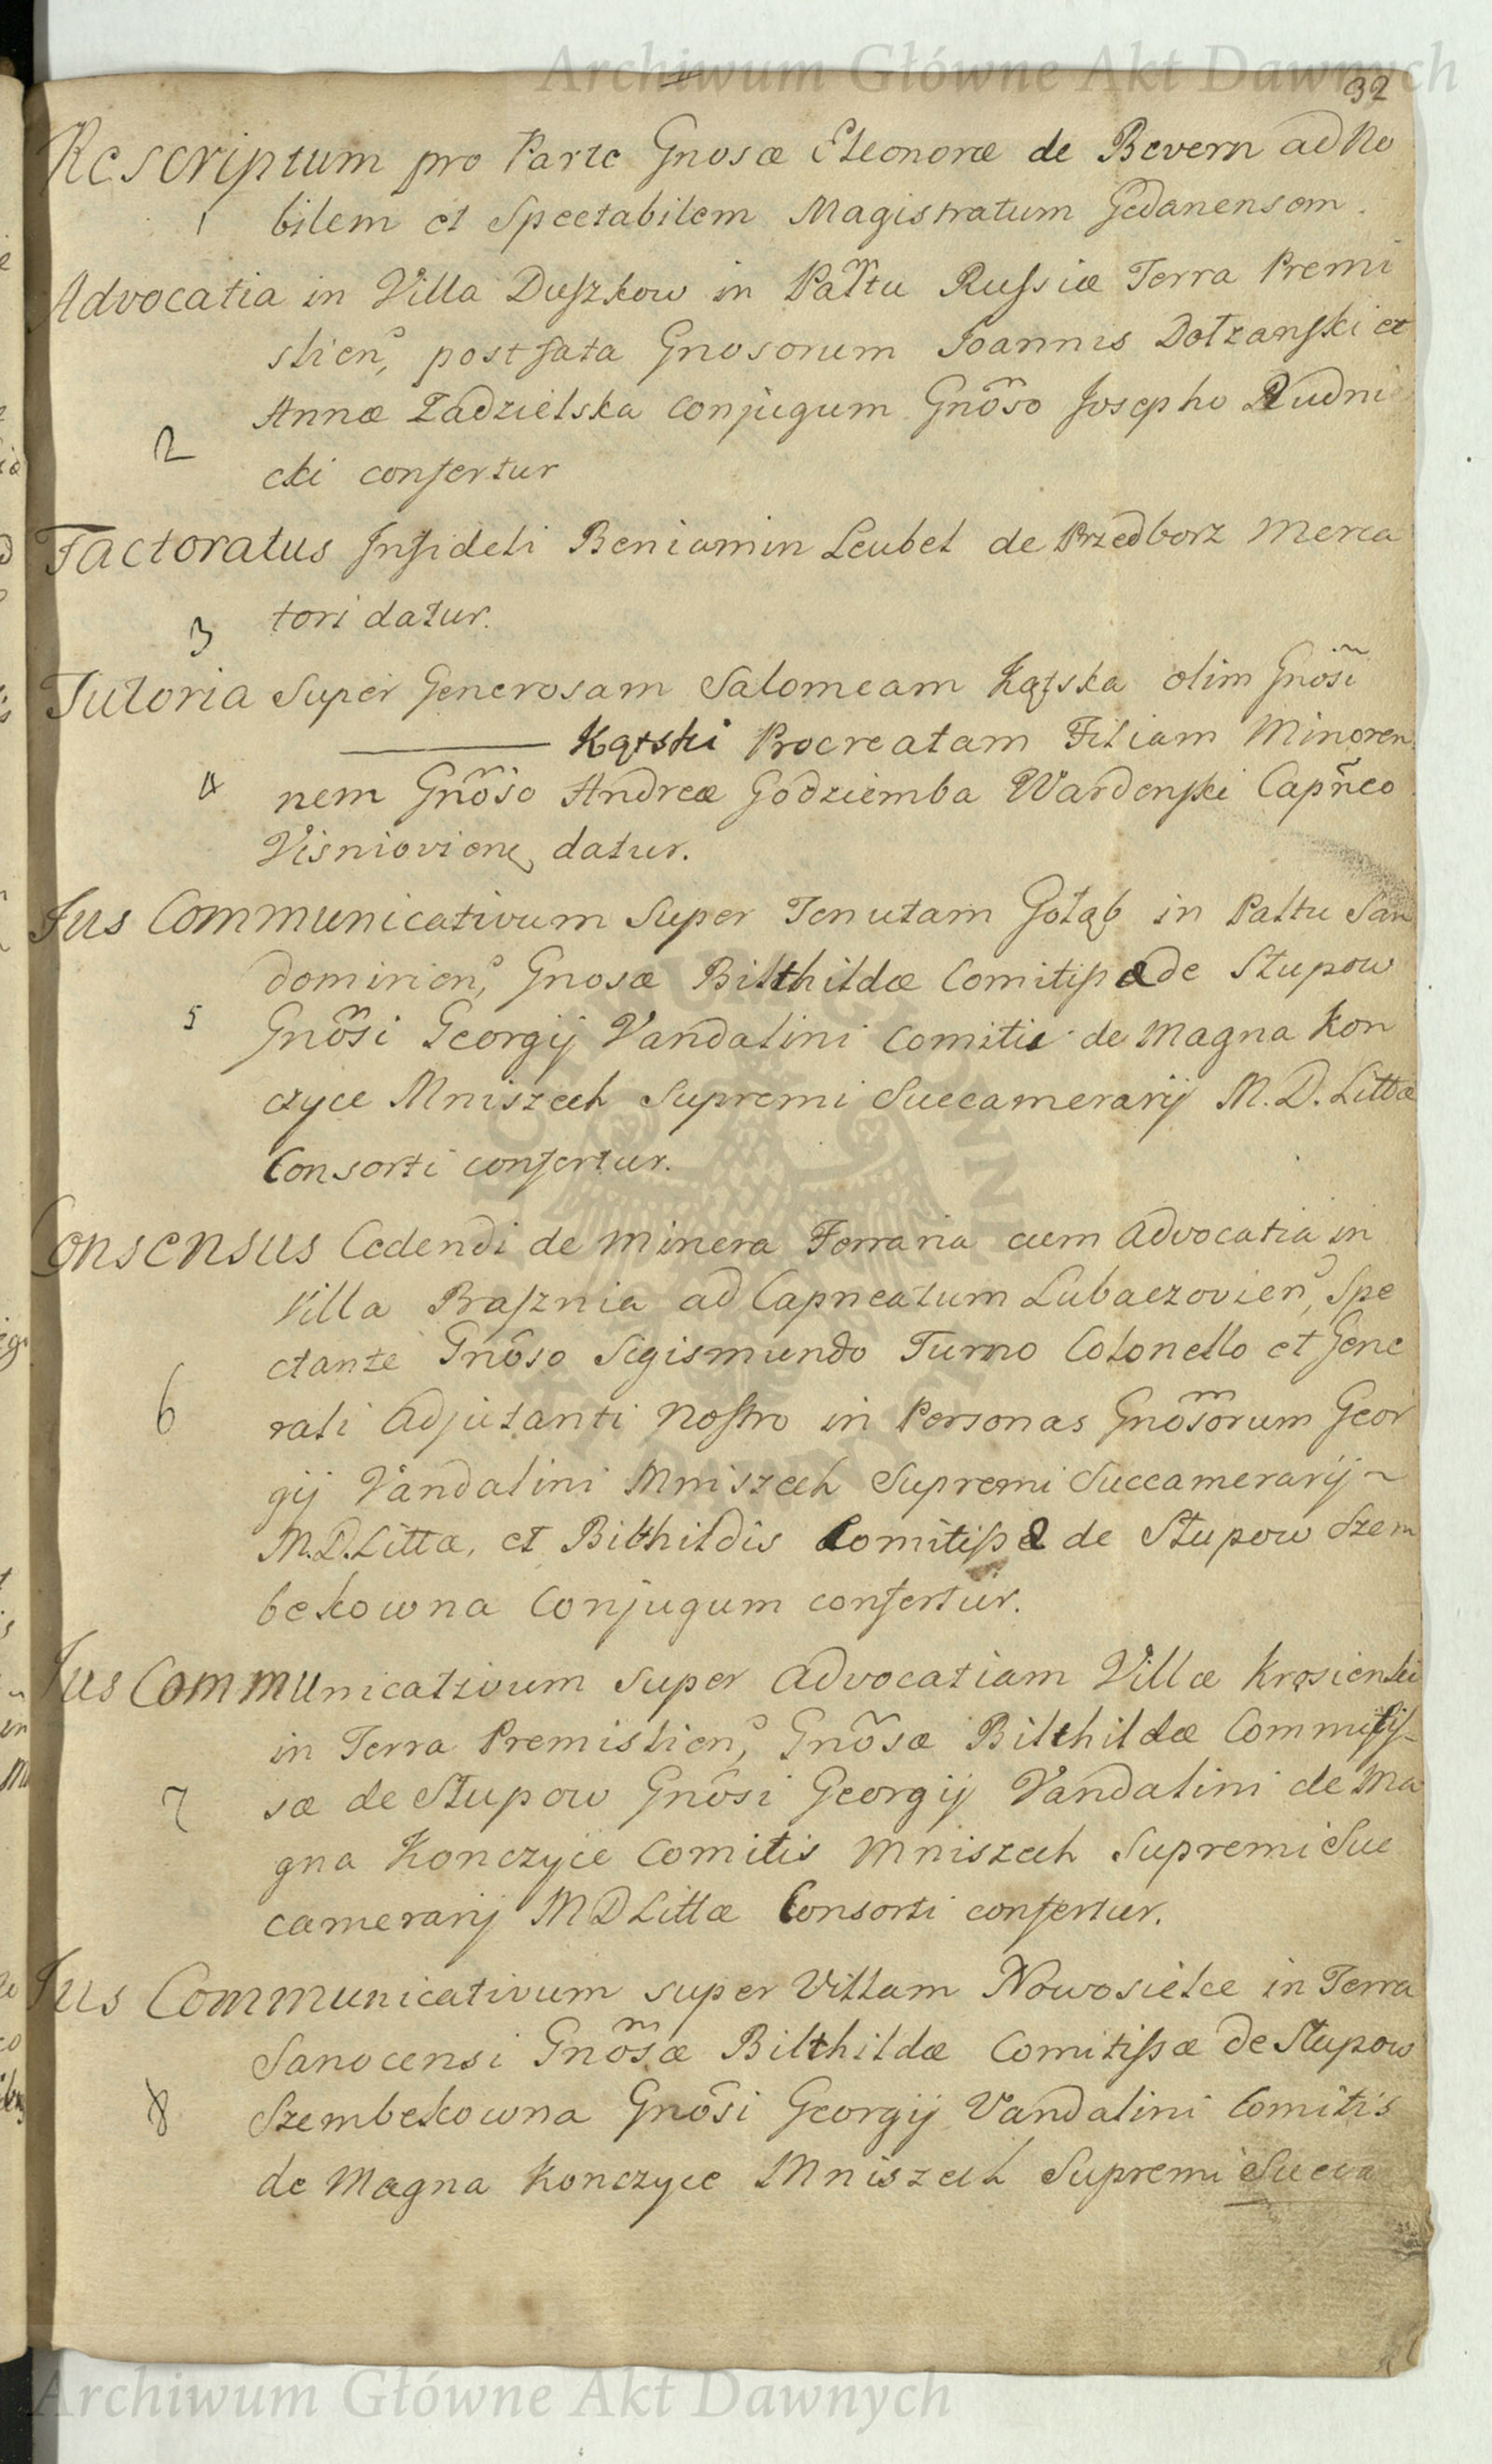 Archiwum Główne Akt Dawnych
32
Rescriptum pro Parte Gnosæ Eleonoræ de Bevern ad No
1 bilem et Spectabilem Magistratum Gedanensem.
Advocatia in Villa Duszkow in Palttu Russiæ Terra Premi
slien, post fata Gnosorum Joannis Dołzanski et
Annæ Zadzielska Conjugum Gnoso Josepho Rudni
2 cki confertur
Factoratus Infideli Beniamin Leubel de Przedborz Merca
3 tori datur.
Tutoria Super Generosam Salomeam Kątska olim Gnosi
Kątski Procreatam Filiam Minoren
4 nem Gnoso Andreæ Godziemba Wardenski Capneo
Visniovien, datur.
Jus Communicativum Super Tenutam Gołąb in Palttu San
domirien, Gnosæ Bilthildæ Comitissæ de Słupow
5 Gnosi Georgij Vandalini Comitis de Magna Kon
czyce Mniszech Supremi Succamerarij M. D. Littæ
Consorti confertur.
Consensus Cedendi de Minera Ferraria cum Advocatia in
Villa Brasznia ad Capneatum Lubaczovien, Spe
ctante Gnoso Sigismundo Turno Colonello et Gene
6 rali Adjutanti Nostro in Personas Gnosorum Geor
gij Vandalini Mniszech Supremi Succamerarij
M.D.Littæ, et Bilthildis Comitissæ de Słupow Szem
bekowna Conjugum confertur.
Jus Communicativum Super Advocatiam Villæ Krosienki
in Terra Premislien, Gnosæ Bilthildæ Commitis-
7 sæ de Słupow Gnosi Georgij Vandalini de Ma
gna Konczyce Comitis Mniszech Supremi Suc
camerarij M D Littæ Consorti confertur.
Jus Communicativum super Villam Nowosielce in Terra
Sanocensi Gnosæ Bilthildæ Comitissæ de Słupow
8 Szembekowna Gnosi Georgij Vandalini Comitis
de Magna Konczyce Mniszech Supremi Succa
Archiwum Główne Akt Dawnych